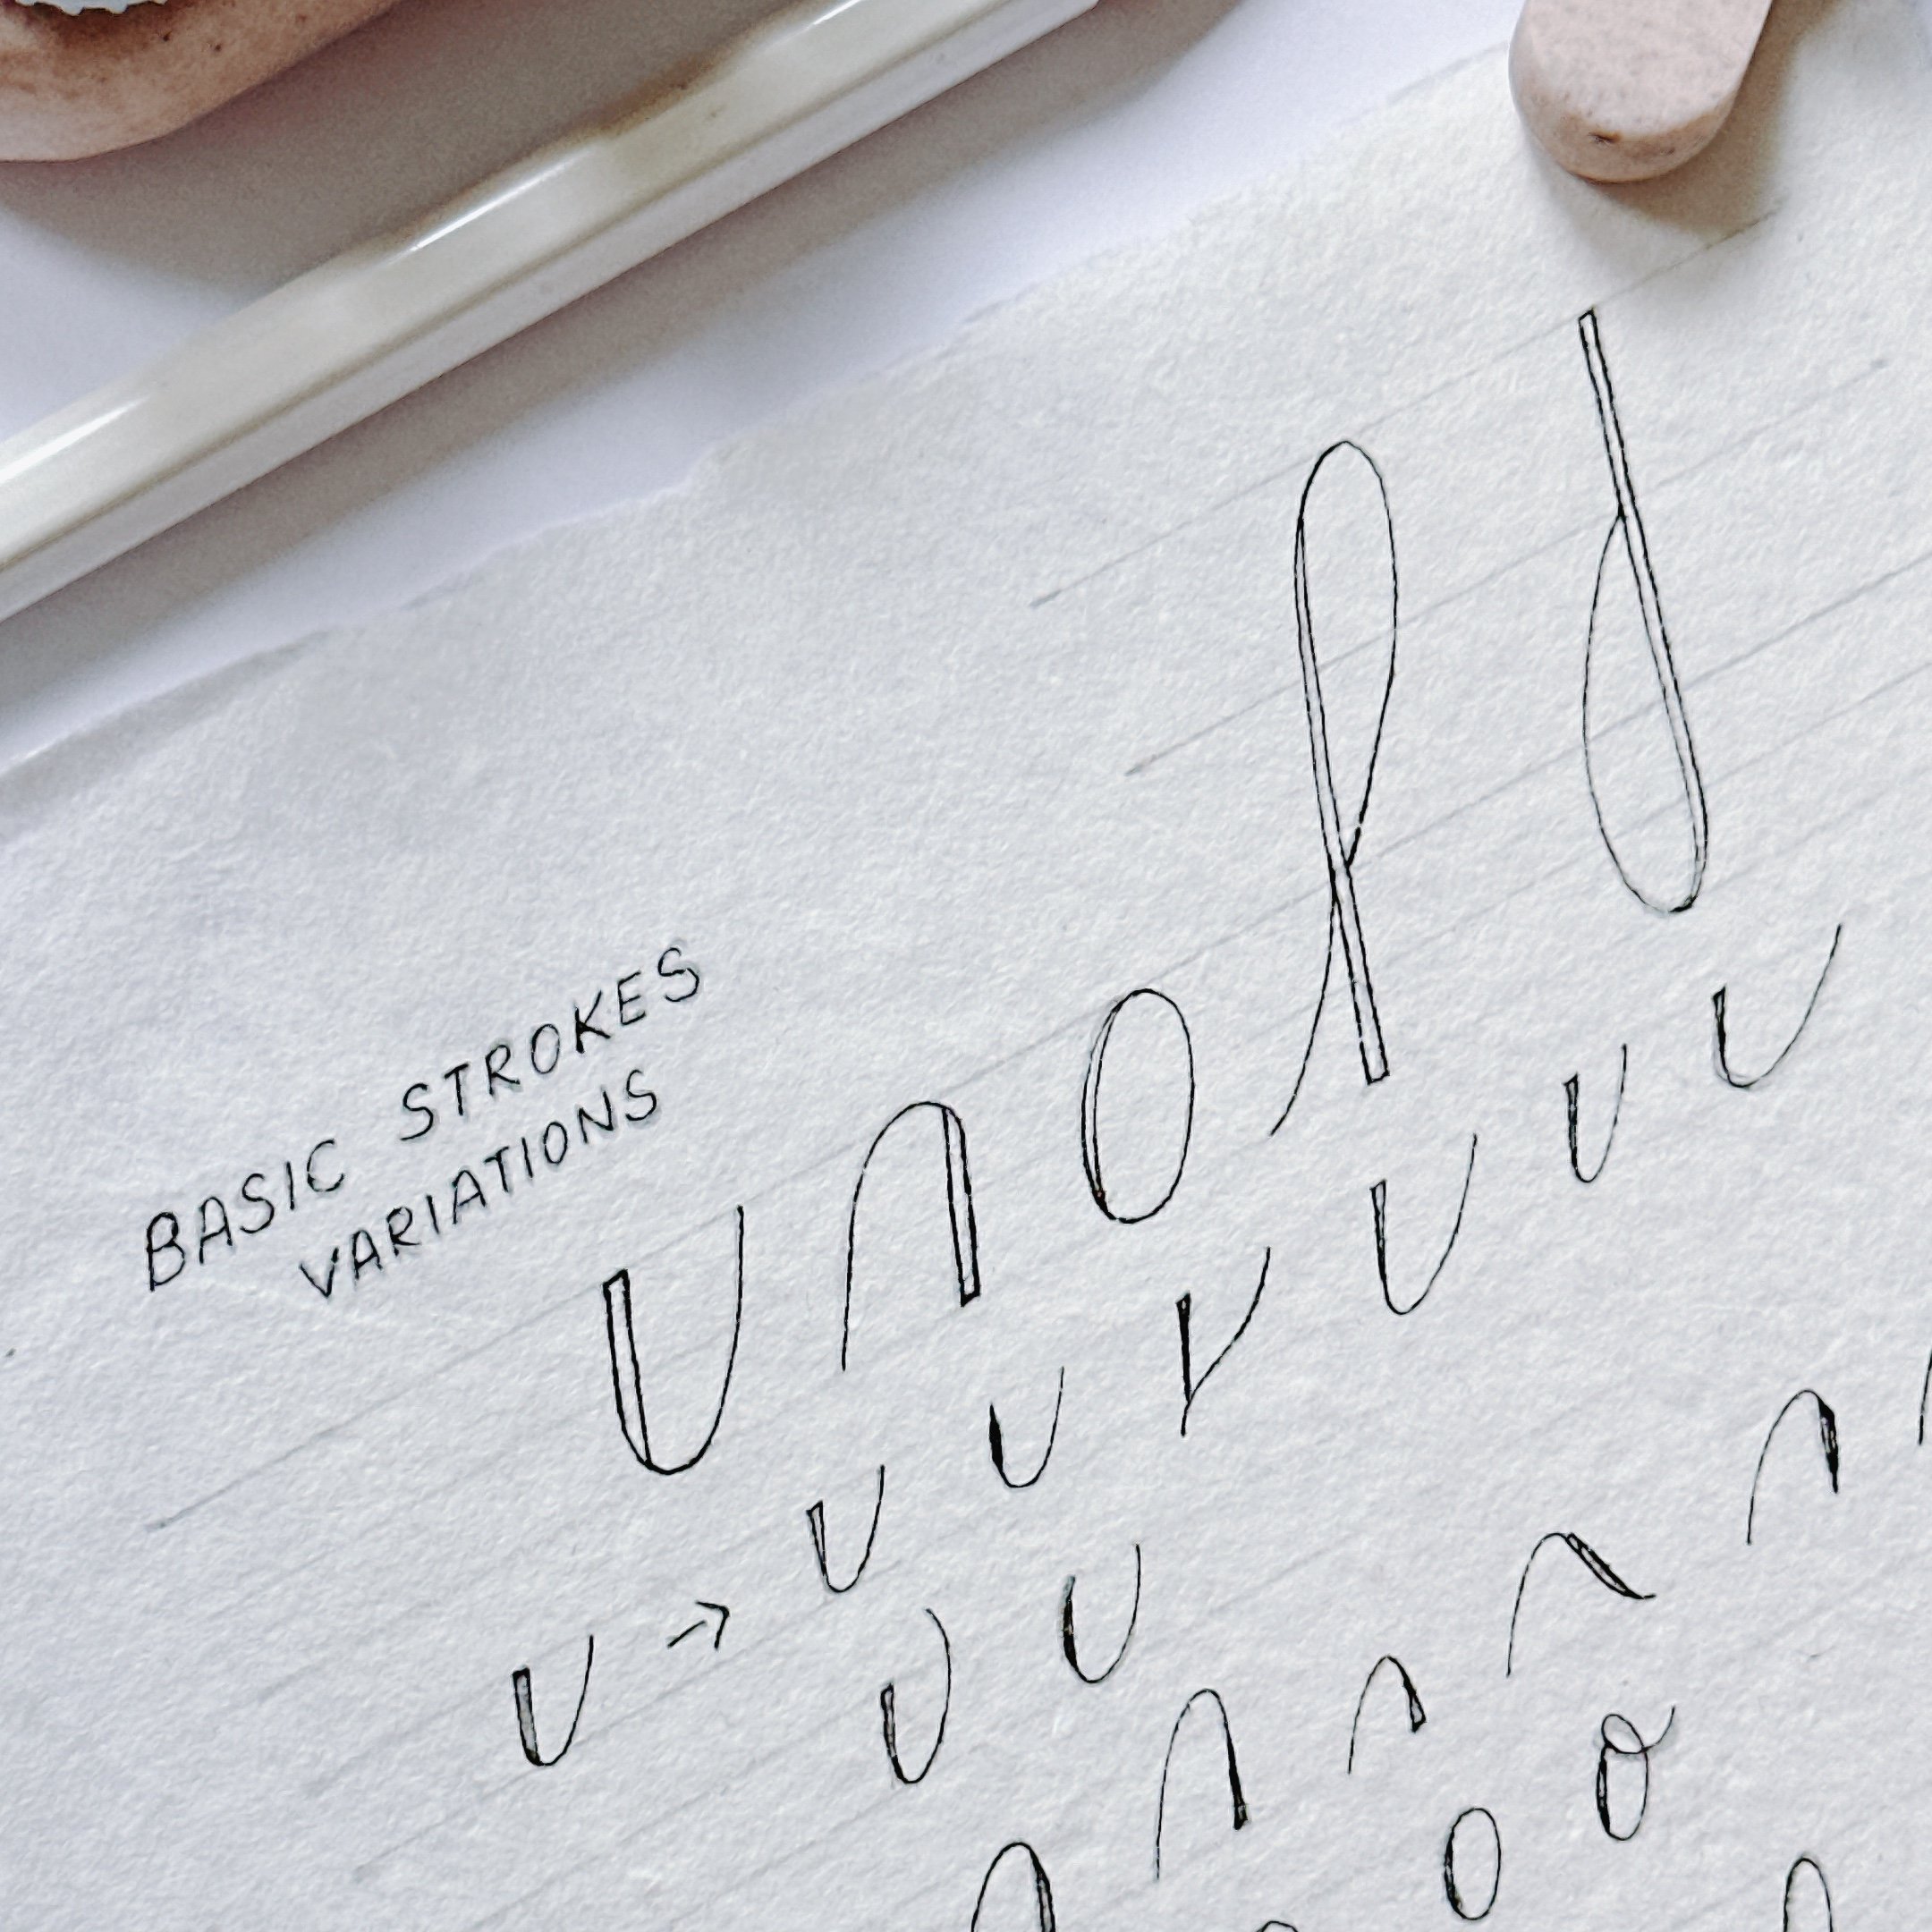 BASIC STROKES
VARIATIONS